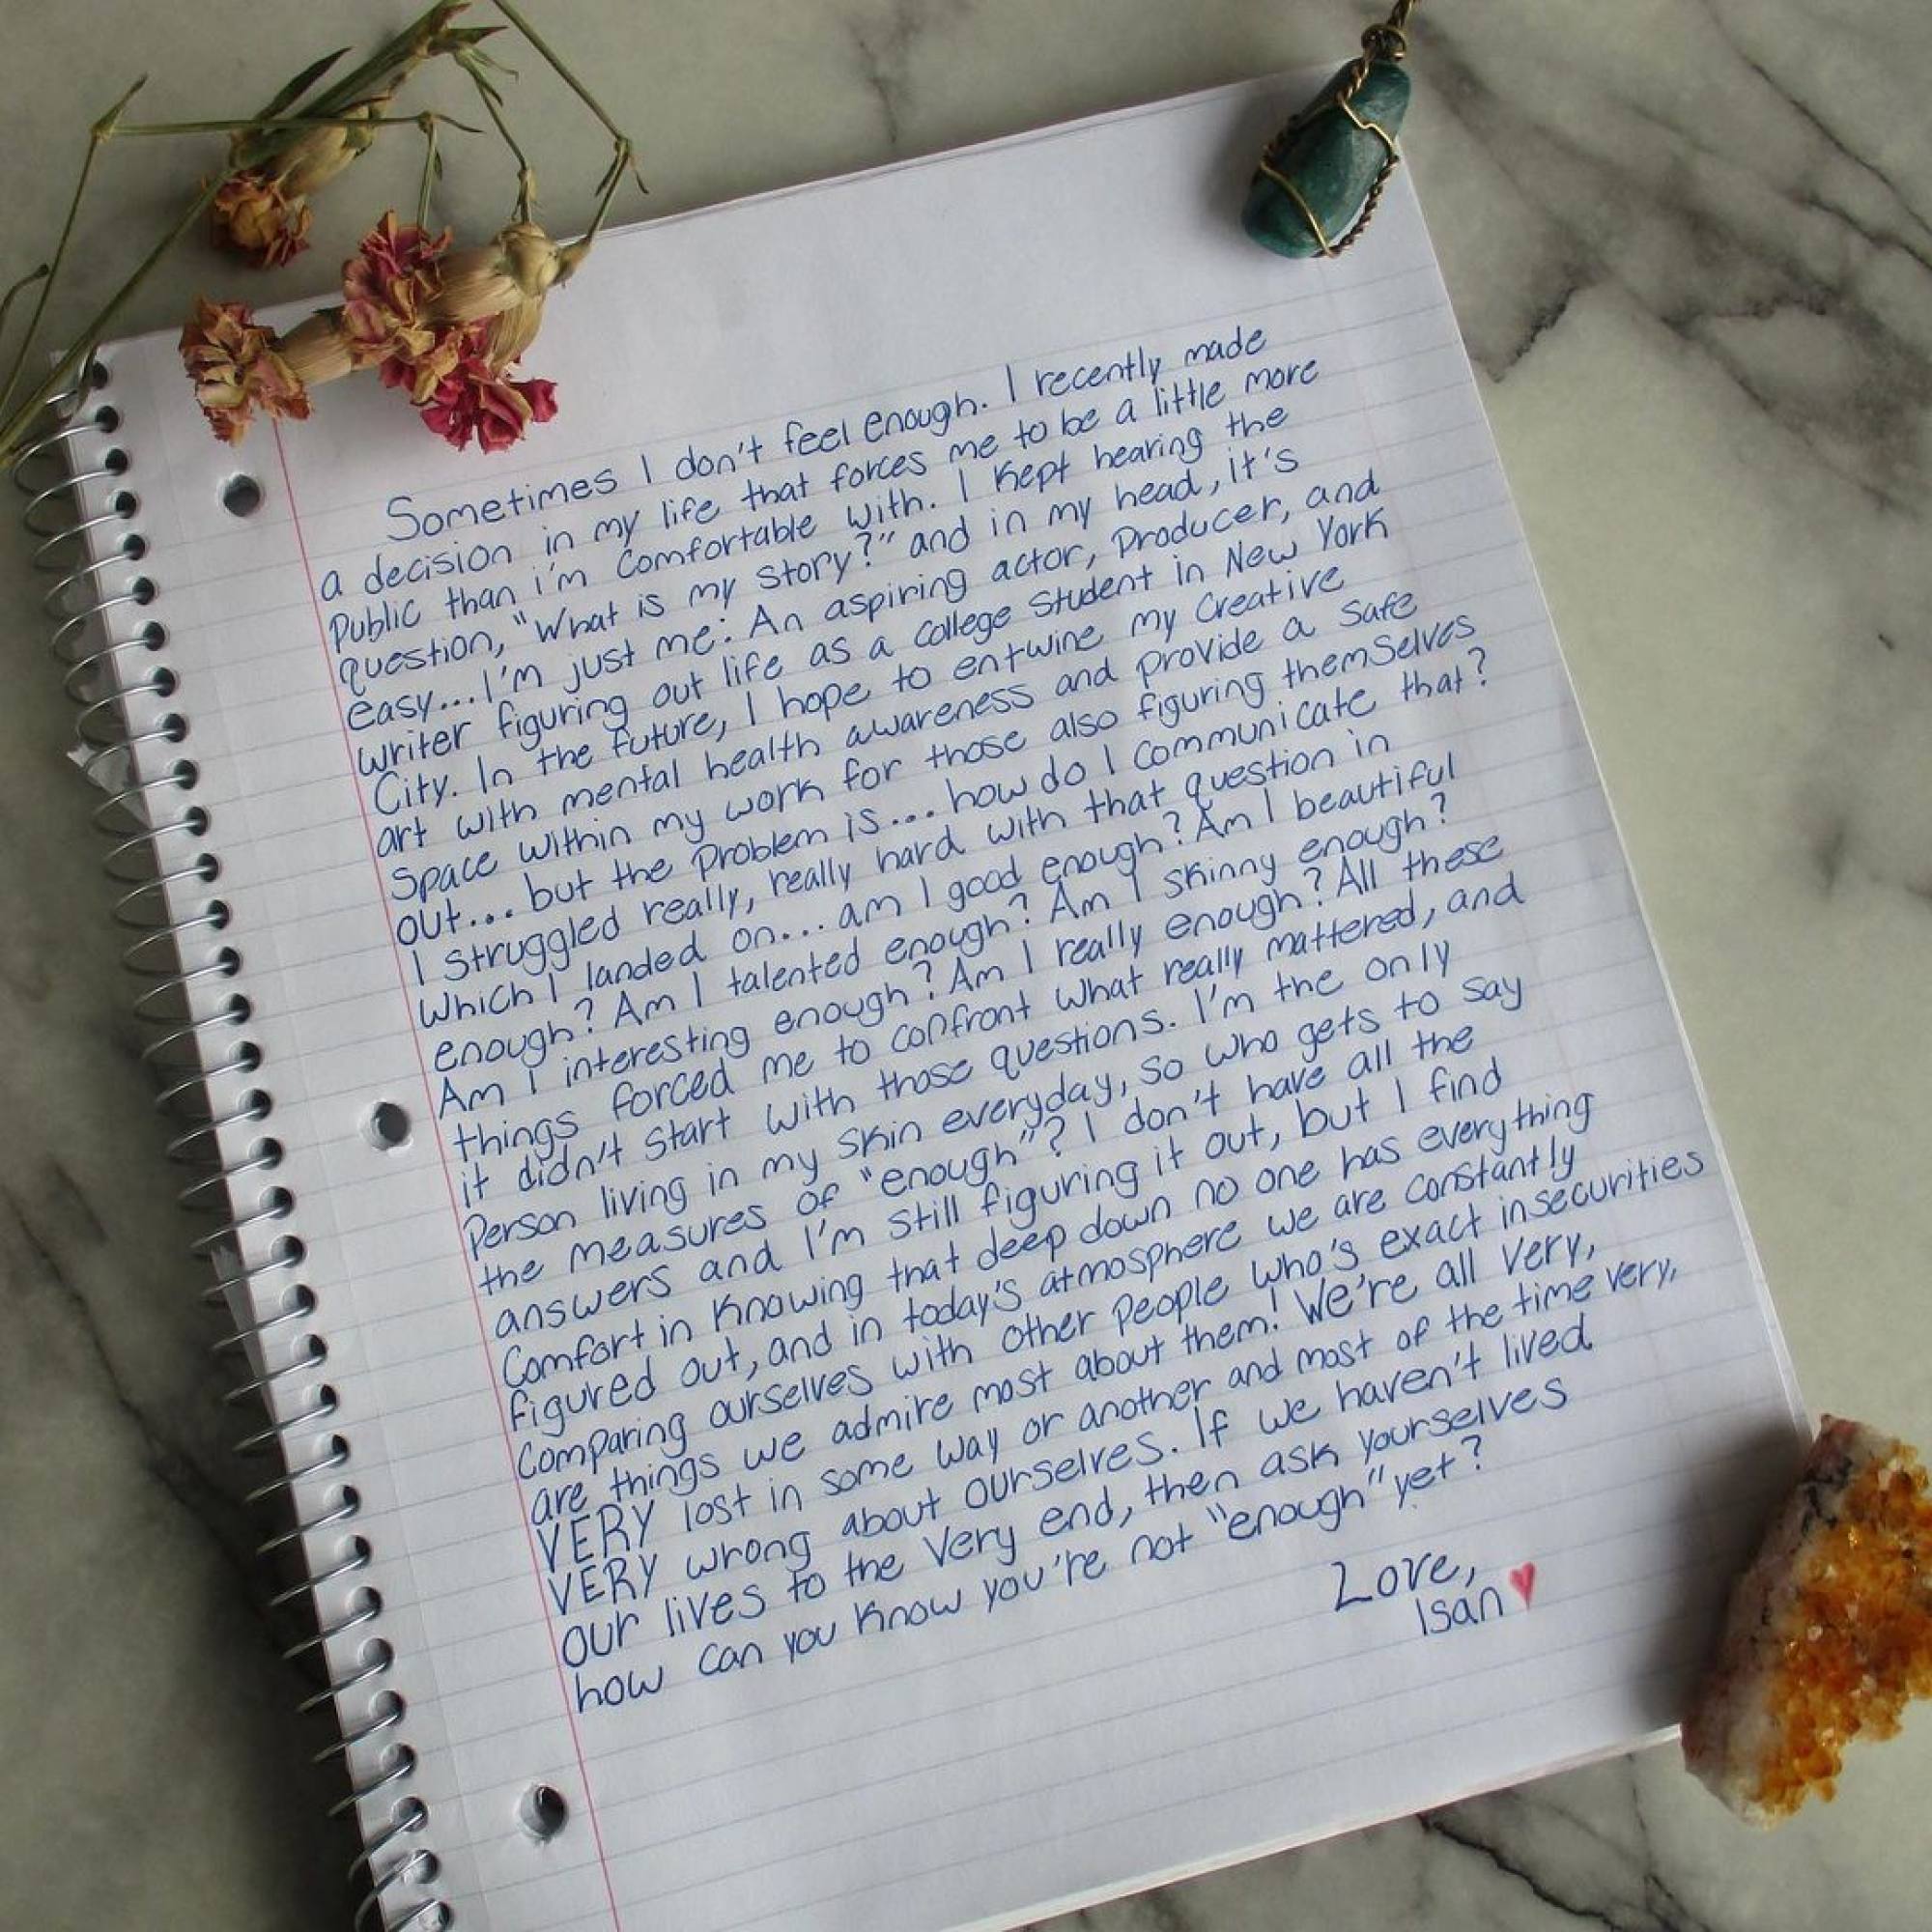 Sometimes I don't feel enough. I recently made
a decision in my life that forces me to be a little more
public than i'm comfortable with. I kept hearing the
question, "What is my story?" and in my head, it's
easy... I'm just me: An aspiring actor, producer, and
writer figuring out life as a college student in New York
City. In the future, I hope to entwine my creative
art with mental health awareness and provide a safe
space within my work for those also figuring themselves
out... but the problem is... how do I communicate that?
I struggled really, really hard with that question in
which I landed on... am I good enough? Am I beautiful
enough? Am I talented enough? Am I skinny enough?
Am I interesting enough? Am I really enough? All these
things forced me to confront what really mattered, and
it didn't start with those questions. I'm the only
person living in my skin everyday, so who gets to say
the measures of "enough"? I don't have all the
answers and I'm still figuring it out, but I find
comfort in knowing that deep down no one has everything
figured out, and in today's atmosphere we are constantly
comparing ourselves with other people who's exact insecurities
are things we admire most about them! We're all very,
VERY lost in some way or another and most of the time very,
VERY wrong about ourselves. If we haven't lived
our lives to the very end, then ask yourselves
how can you know you're not "enough" yet?
Love,
Isan